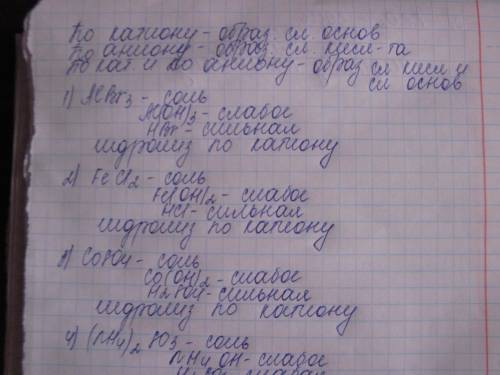 по катиону - образ. сл. основ
по аниону - образ. сл. кисл-та
по кат. и по аниону - образ сл кисл и
сл основ
1) AlBr3 - соль
Al(OH)3 - слабое
HBr - сильная
гидролиз по катиону
2) FeCl2 - соль
Fe(OH)2 - слабое
HCl - сильная
гидролиз по катиону
3) CoSO4 - соль
Co(OH)2 - слабое
H2SO4 - сильная
гидролиз по катиону
4) (NH4)2SO3 - соль
NH4OH - слабое